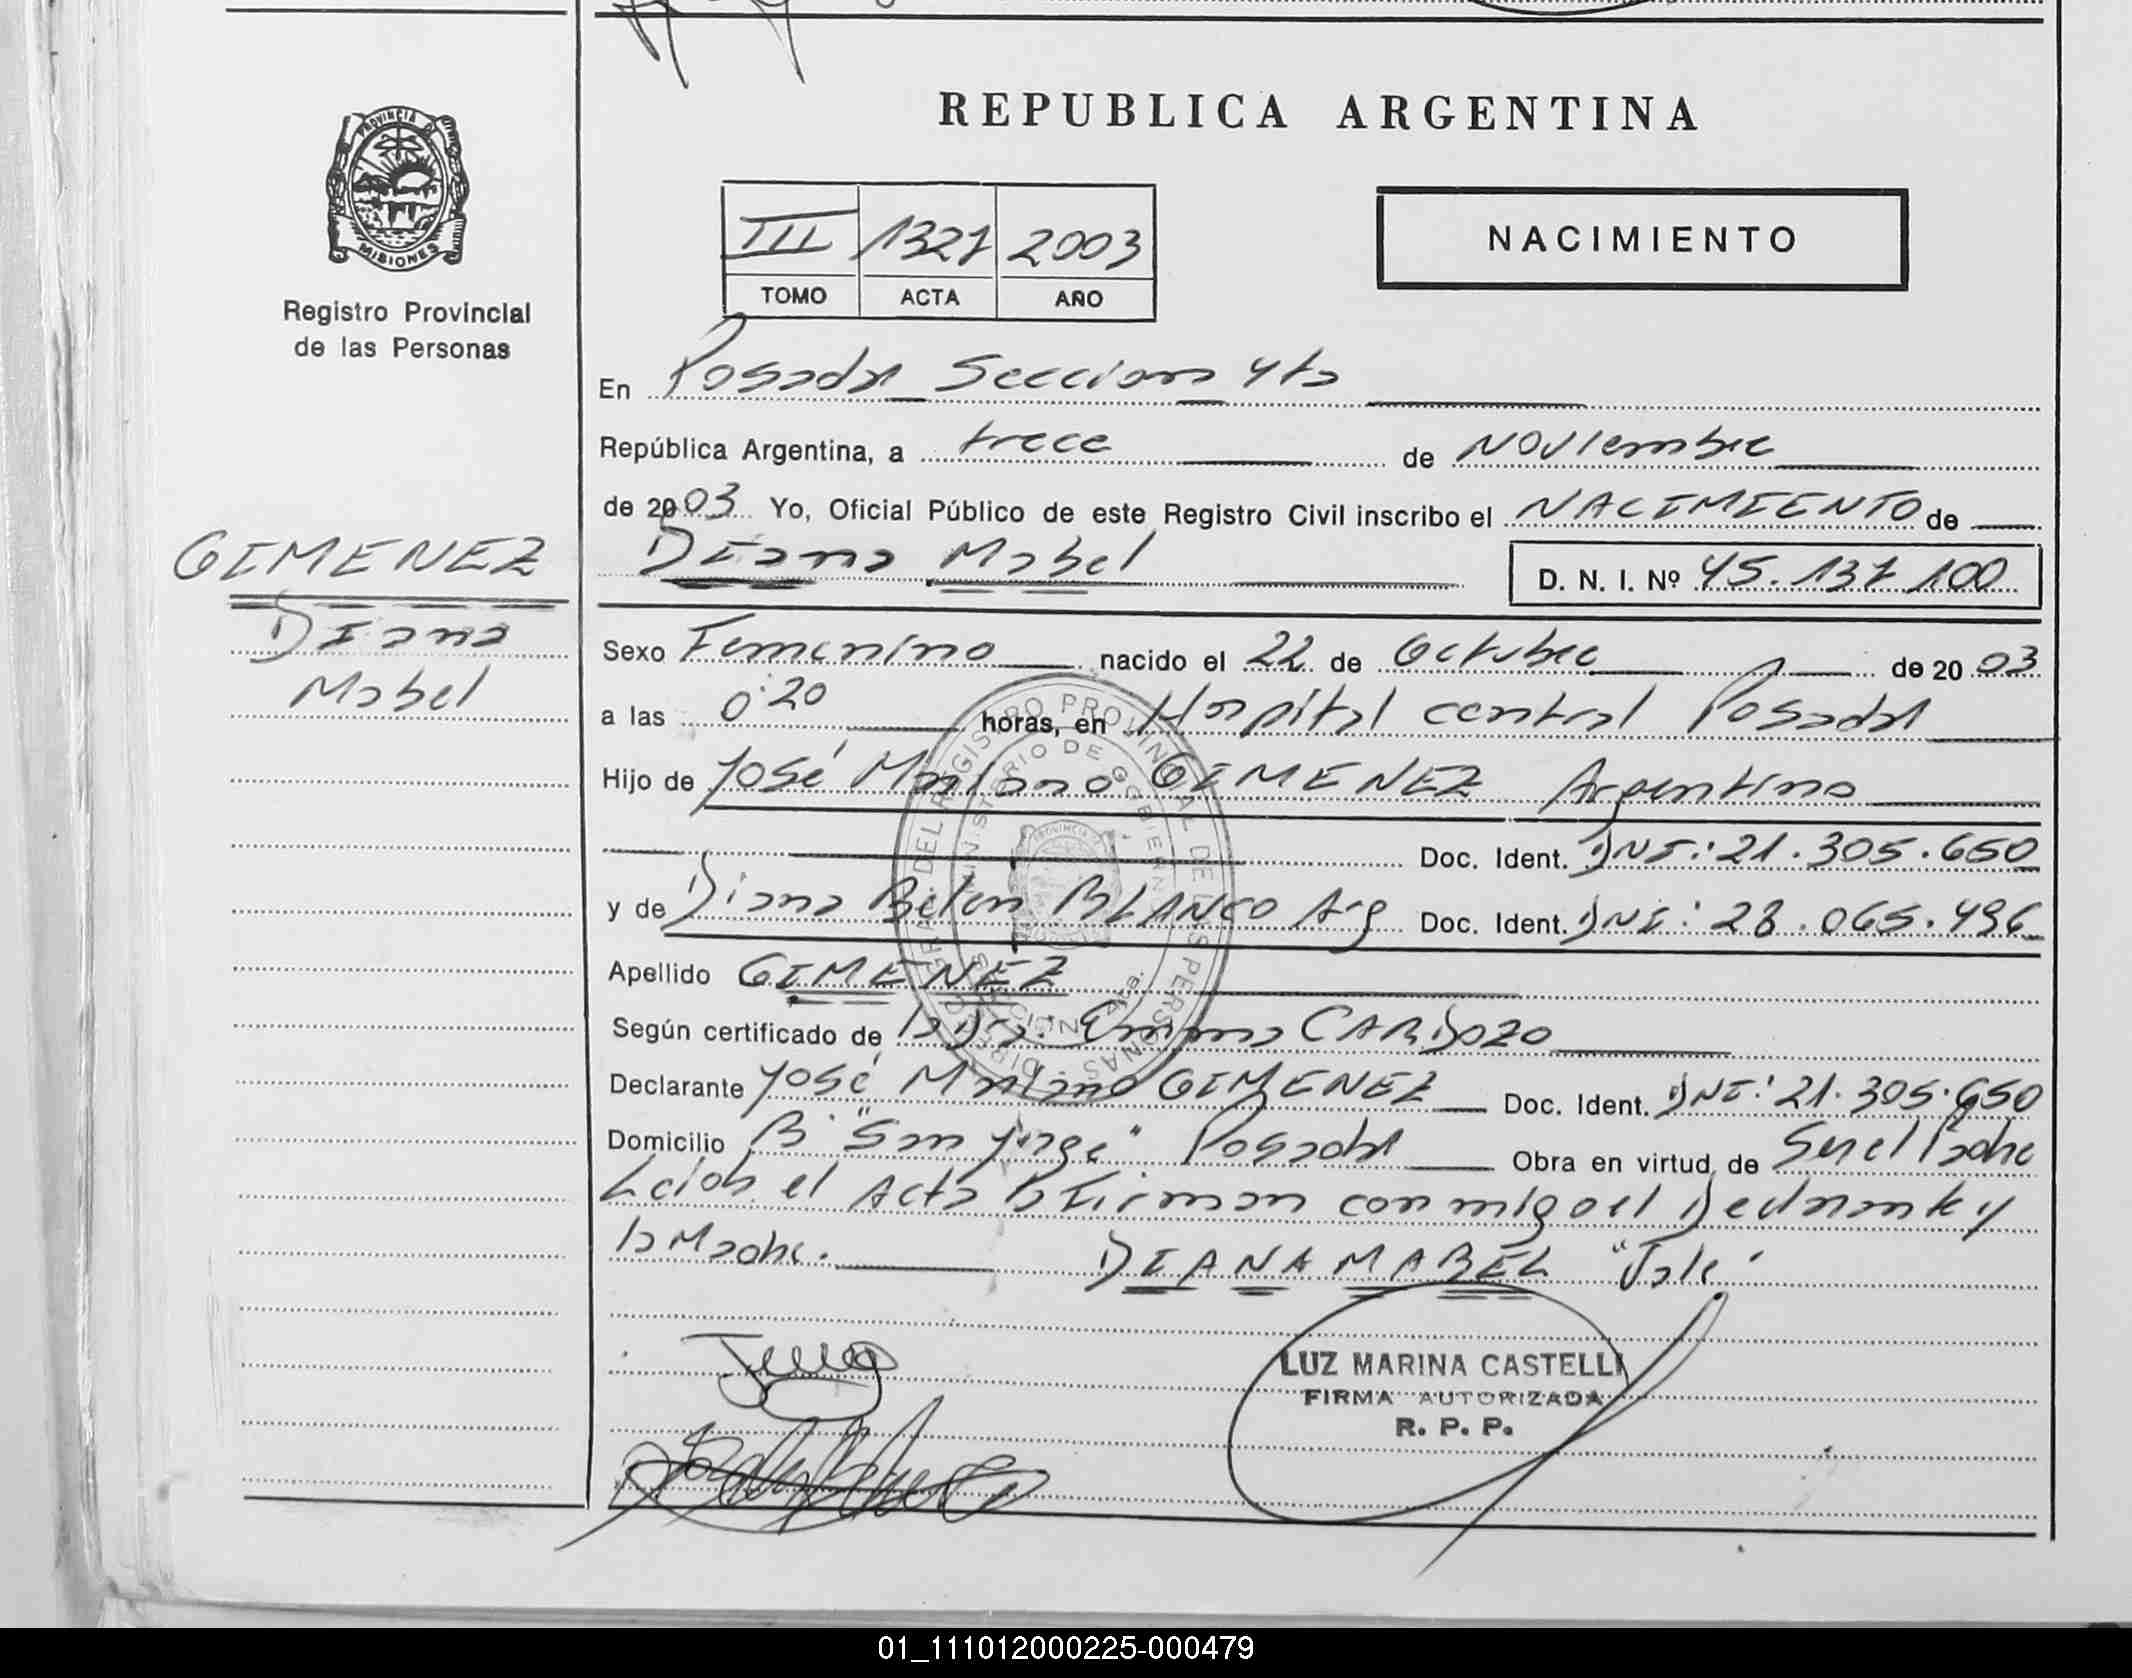 REPUBLICA ARGENTINA
PROVINCIA D MISIONES
Registro Provincial
de las Personas
III 1327 2003
TOMO ACTA AÑO
NACIMIENTO
En Posadas Seccion 4ta
República Argentina, a trece de Noviembre
de 2003 Yo, Oficial Público de este Registro Civil inscribo el NACIMIENTO de
GIMENEZ
Diana Mabel
Diana Mabel D. N. I. Nº 45.137.100
Sexo Femenino nacido el 22 de Octubre de 2003
a las 0:20 horas, en Hospital central Posadas
Hijo de José Mariano GIMENEZ Argentino
Doc. Ident. DNI: 21.305.650
y de Diana Belen BLANCO Arg Doc. Ident. DNI: 28.065.496
Apellido GIMENEZ
Según certificado de la Dra. Emma CARDOZO
Declarante José Mariano GIMENEZ Doc. Ident. DNI: 21.305.650
Domicilio B "San Jorge" Posadas Obra en virtud de Ser el Padre
Leida el Acta la Firman conmigo el Declarante y
la Madre. DIANA MABEL "Vale"
DIREC GRAL DEL REGISTRO PROVINCIAL DE LAS PERSONAS
MINISTERIO DE GOBIERNO
LUZ MARINA CASTELLI
FIRMA AUTORIZADA
R. P. P.
01_111012000225-000479